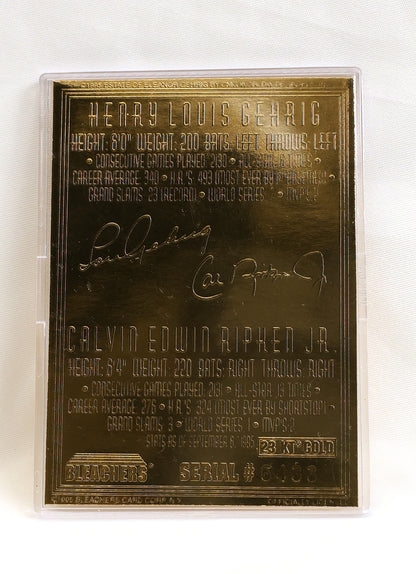 HENRY LOUIS GEHRIG
HEIGHT: 6'0" WEIGHT: 200 BATS: LEFT THROWS: LEFT
• CONSECUTIVE GAMES PLAYED: 2130 • ALL-STAR: TIMES
CAREER AVERAGE: 340 • H.R.'S: 493 (MOST EVER BY
GRAND SLAMS: 23 (RECORD) • WORLD SERIES: • MVP'S: 2
Lou Gehrig
Cal Ripken Jr.
CALVIN EDWIN RIPKEN JR.
HEIGHT: 6'4" WEIGHT: 220 BATS: RIGHT THROWS: RIGHT
• CONSECUTIVE GAMES PLAYED: 2131 • ALL-STAR: 13 TIMES
CAREER AVERAGE: 276 • H.R.'S: 324 (MOST EVER BY SHORTSTOP)
GRAND SLAMS: 3 • WORLD SERIES: 1 • MVP'S: 2
STATS AS OF SEPTEMBER 6, 1995
23 KT GOLD
BLEACHERS SERIAL #
BLEACHERS CARD CORP. N.Y.